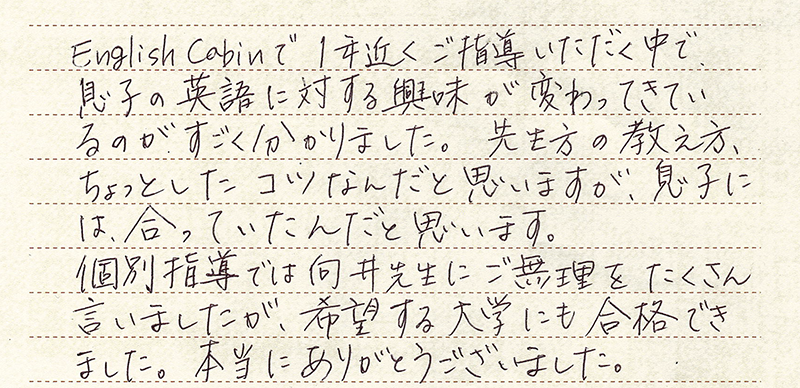 English Cabinで1年近くご指導いただく中で、
息子の英語に対する興味が変わってきてい
るのが、すごく分かりました。先生方の教え方、
ちょっとしたコツなんだと思いますが、息子に
は、合っていたんだと思います。
個別指導では向井先生にご無理をたくさん
言いましたが、希望する大学にも合格でき
ました。本当にありがとうございました。